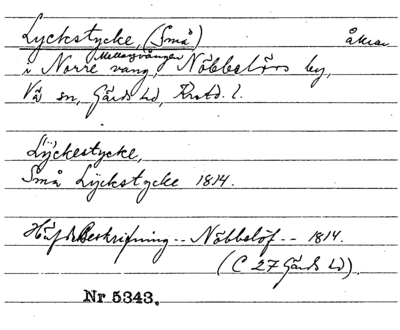 Lyckstycke, (Små) åkrar
i Norre vång, Mellanvången, Nöbbelövs by,
Vä sn, Gärds hd, Krstd. l.
Lyckestycke,
Små Lyckstycke 1814.
Häfdebeskrifning -- Nöbbelöf -- 1814.
(C 27 Gärds hd).
Nr 5343.